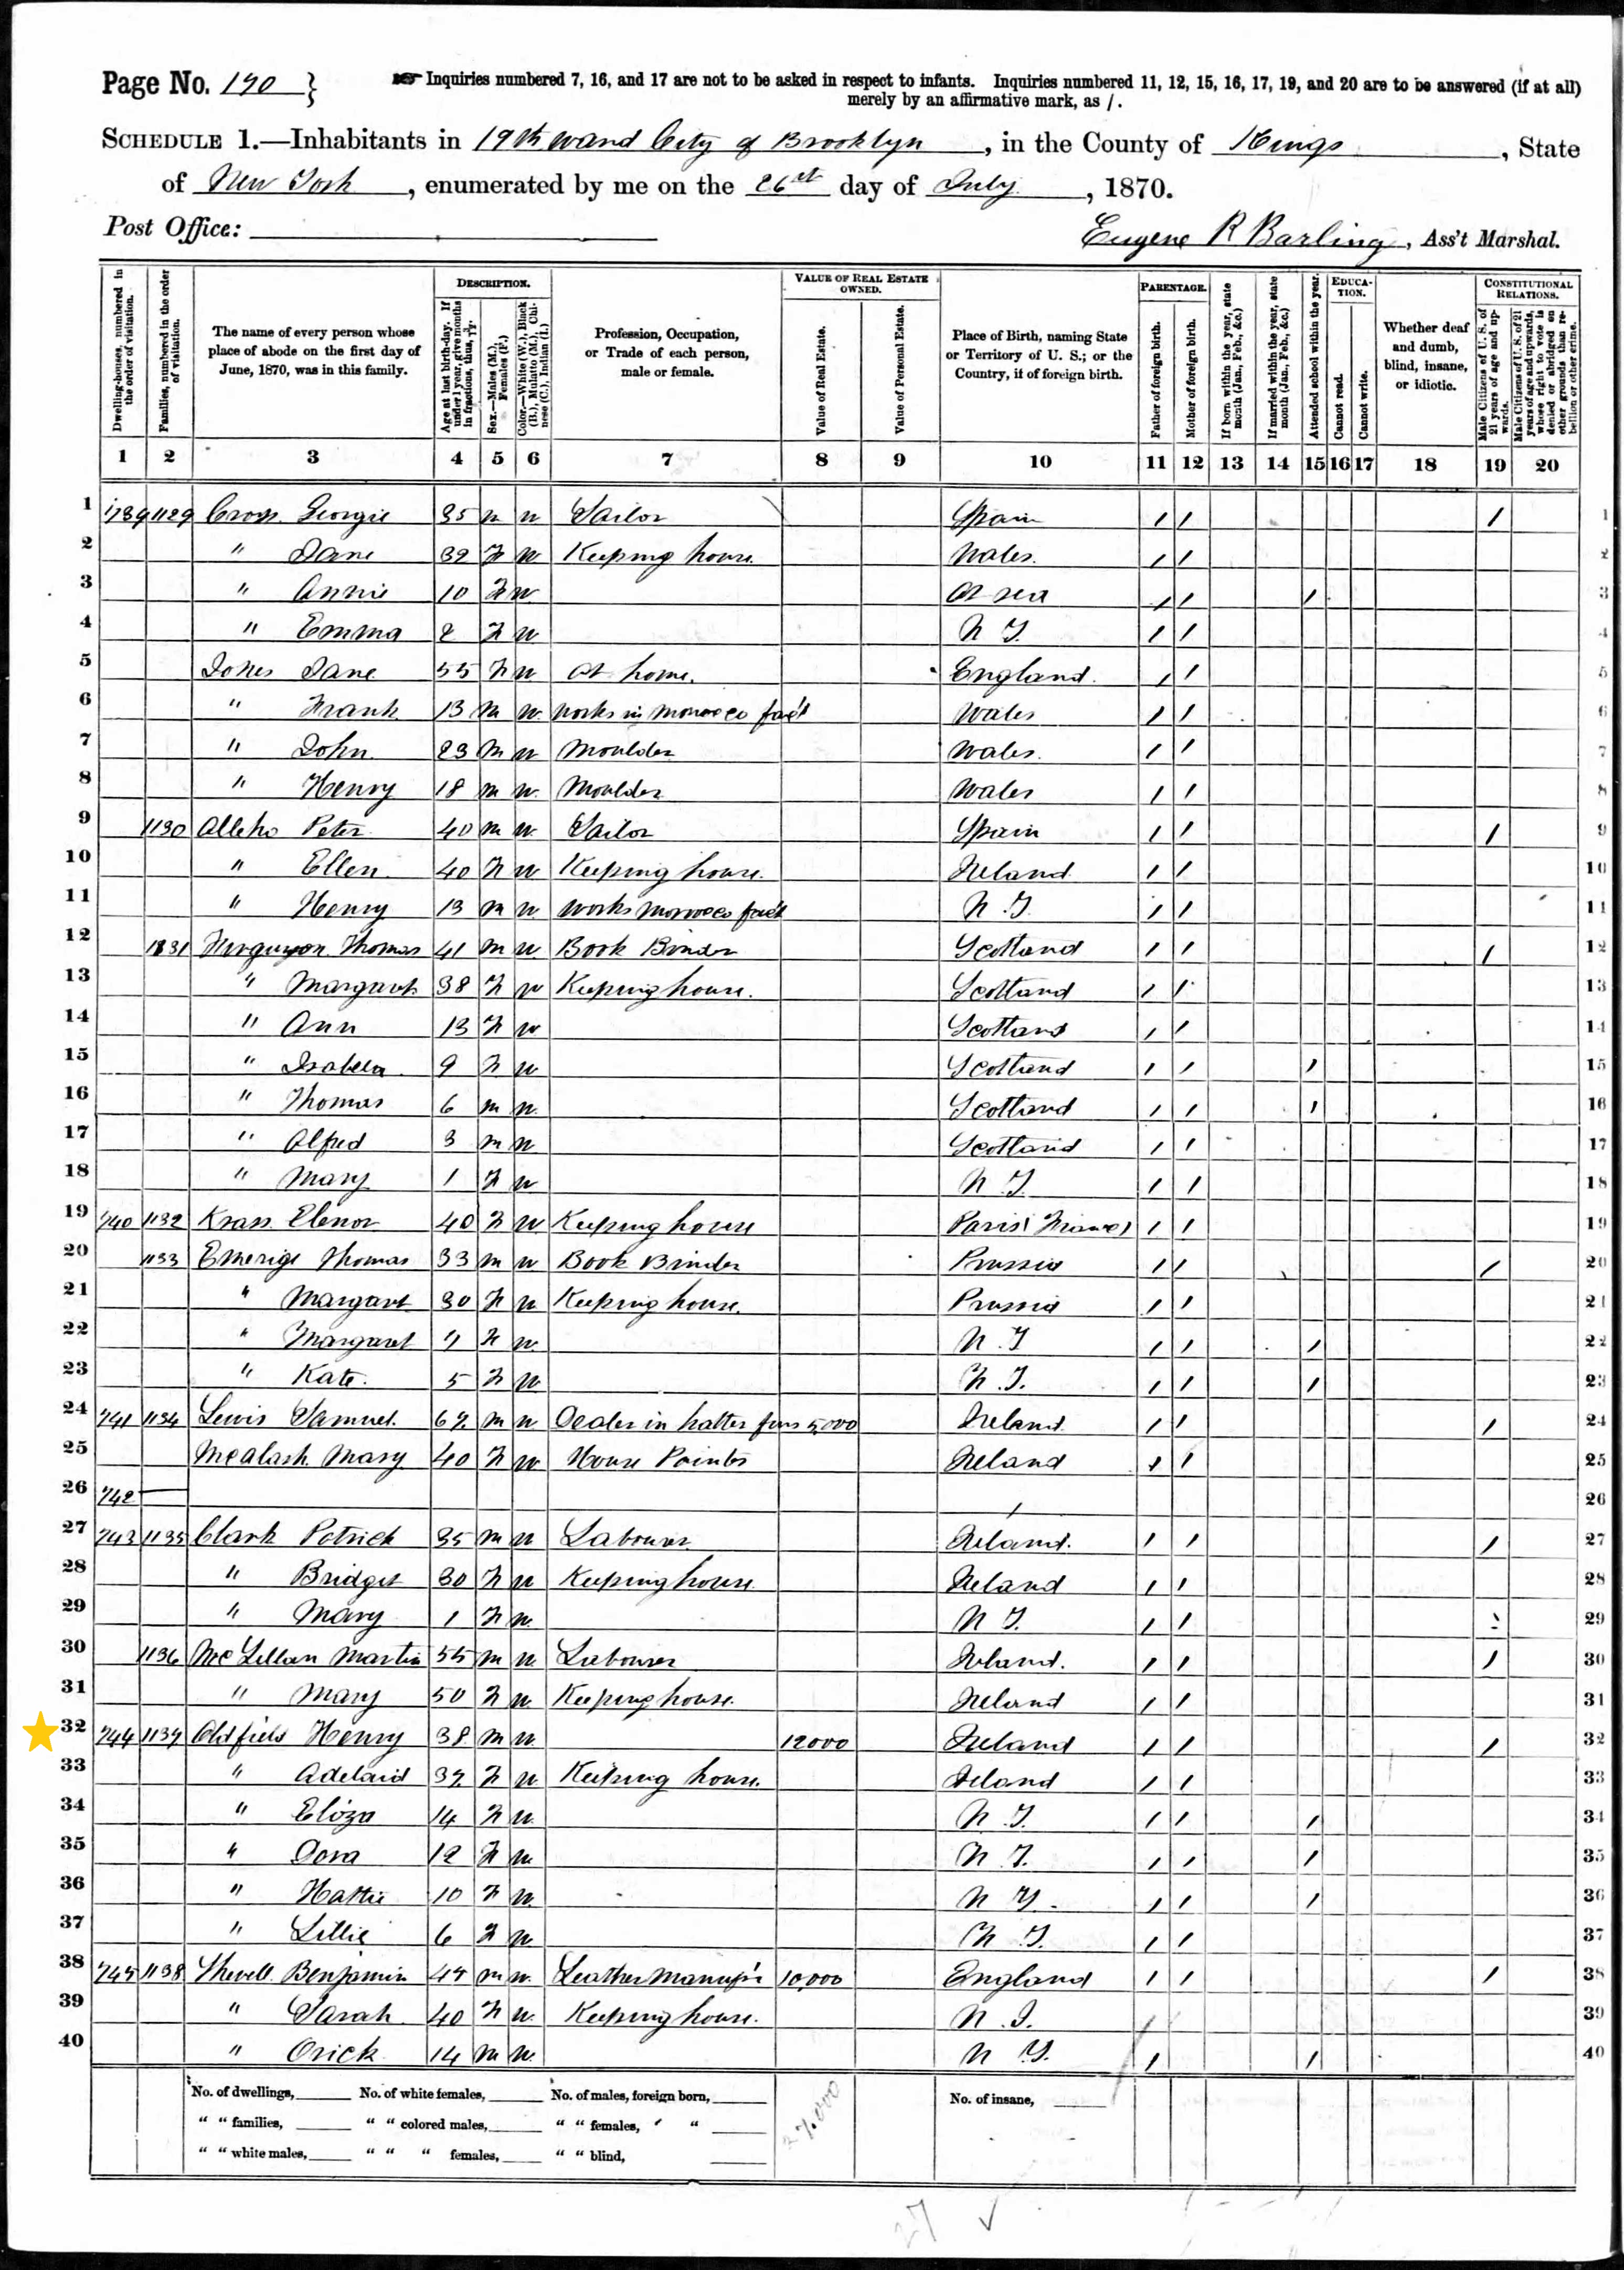 Page No. 190 }
Inquiries numbered 7, 16, and 17 are not to be asked in respect to infants. Inquiries numbered 11, 12, 15, 16, 17, 19, and 20 are to be answered (if at all)
merely by an affirmative mark, as /.
SCHEDULE 1.—Inhabitants in 19th ward City of Brooklyn, in the County of Kings, State
of New York, enumerated by me on the 26 day of July, 1870.
Post Office:
Eugene R Barling, Ass't Marshal.
Dwelling-houses, numbered in the order of visitation.
Families, numbered in the order of visitation.
The name of every person whose place of abode on the first day of June, 1870, was in this family.
DESCRIPTION.
Age at last birth-day. If under 1 year, give months in fractions, thus, 3/12.
Sex.—Males (M.), Females (F.)
Color.—White (W.), Black (B.), Mulatto (M.), Chinese (C.), Indian (I.)
Profession, Occupation, or Trade of each person, male or female.
VALUE OF REAL ESTATE OWNED.
Value of Real Estate.
Value of Personal Estate.
Place of Birth, naming State or Territory of U. S.; or the Country, if of foreign birth.
PARENTAGE.
Father of foreign birth.
Mother of foreign birth.
If born within the year, state month (Jan., Feb., &c.)
If married within the year, state month (Jan., Feb., &c.)
Attended school within the year.
EDUCATION.
Cannot read.
Cannot write.
Whether deaf and dumb, blind, insane, or idiotic.
CONSTITUTIONAL RELATIONS.
Male Citizens of U. S. of 21 years of age and upwards.
Male Citizens of U. S. of 21 years of age and upwards, whose right to vote is denied or abridged on other grounds than rebellion or other crime.
1 2 3 4 5 6 7 8 9 10 11 12 13 14 15 16 17 18 19 20
1 739 1129 Cross Georgie 35 m w Sailor Spain / / / 1
2 " Jane 32 F w Keeping house. Wales. / / 2
3 " Annie 10 F w At sea / / / 3
4 " Emma 2 F w N Y. / / 4
5 Jones Jane 55 F w At home. England. / / 5
6 " Frank 13 m w works in Morocco fact Wales / / 6
7 " John 23 m w Moulder Wales. / / 7
8 " Henry 18 m w Moulder Wales / / 8
9 1130 Peter 40 m w Sailor Spain / / / 9
10 " Ellen 40 F w Keeping house. Ireland / / 10
11 " Henry 13 m w works Morocco fact N.Y. / / 11
12 1131 Thomas 41 m w Book Binder Scotland / / / 12
13 " Margaret 38 F w Keeping house. Scotland / / 13
14 " Ann 13 F w Scotland / / 14
15 " Isabela 9 F w Scotland / / / 15
16 " Thomas 6 m w Scotland / / / 16
17 " Alfred 3 m w Scotland / / 17
18 " Mary 1 F w N Y. / / 18
19 740 1132 Krass Elenor 40 F w Keeping house Paris (France) / / 19
20 1133 Emerige Thomas 33 m w Book Binder Prussia / / / 20
21 " Margaret 30 F w Keeping house. Prussia / / 21
22 " Margaret 7 F w N.Y / / / 22
23 " Kate. 5 F w N.Y. / / / 23
24 741 1134 Lewis Samuel. 62 m w Dealer in hatter furs 5,000 Ireland / / / 24
25 Mary 40 F w House Ireland / / 25
26 742 26
27 743 1135 Clark Patrick 35 m w Labourer Ireland. / / / 27
28 " Bridget 30 F w Keeping house. Ireland / / 28
29 " Mary 1 F w N Y. / / 29
30 1136 Martin 55 m w Labourer Ireland. / / / 30
31 " Mary 50 F w Keeping house. Ireland / / 31
32 744 1137 Oldfield Henry 38 m w 12000 Ireland / / / 32
33 " Adelaid 37 F w Keeping house. Ireland / / 33
34 " Eliza 14 F w N.Y. / / / 34
35 " Dora 12 F w N.Y. / / / 35
36 " Hattie 10 F w N Y. / / / 36
37 " Lillie 6 F w N.Y. / / 37
38 745 1138 Benjamin 45 m w Leather Manuf'r 10,000 England / / / 38
39 " Sarah 40 F w Keeping house. N.Y. 39
40 " Orick 14 m w N Y. / / 40
No. of dwellings, No. of white females, No. of males, foreign born, No. of insane,
" " families, " " colored males, " " females, " "
" " white males, " " " females, " " blind,
27,000
27